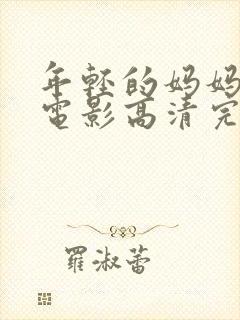 年輕的妈妈
電影高清完
羅淑蕾